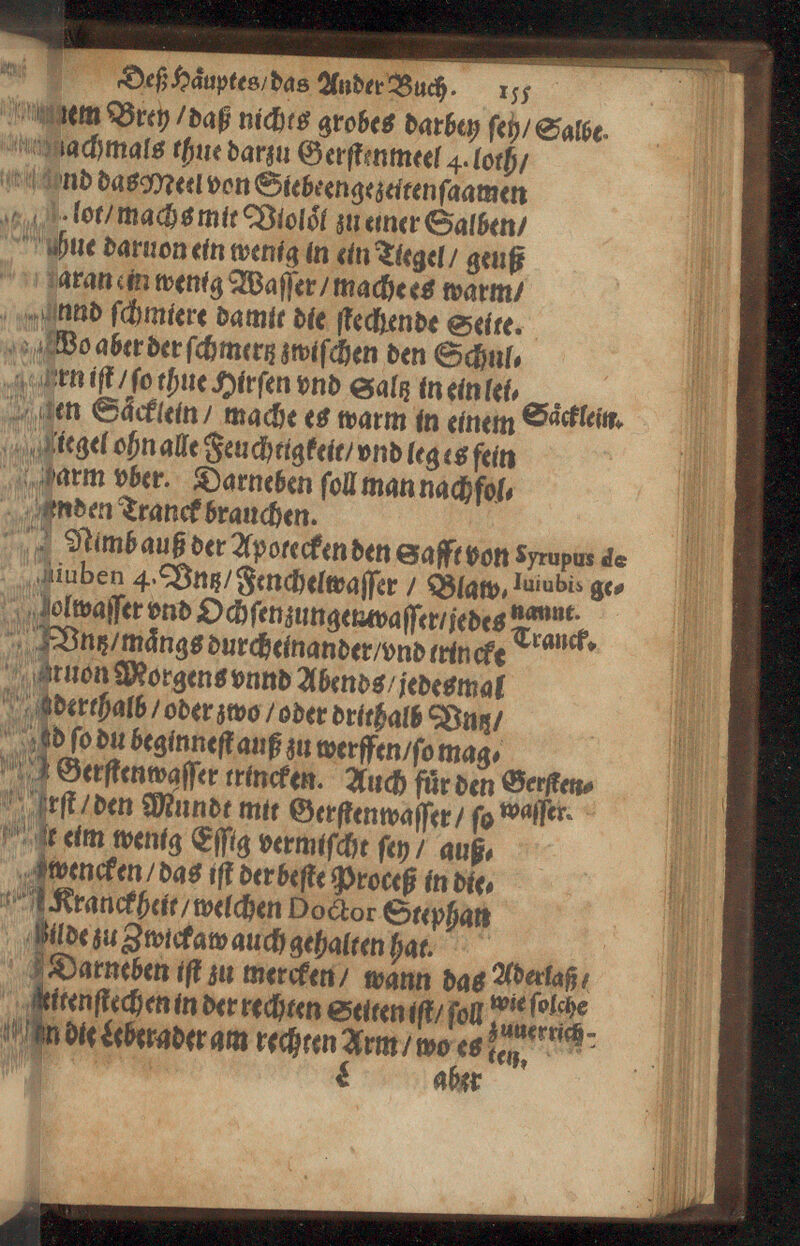 Deß Häuptes/das Ander Buch. 155
Brey /daß nichts grobes darbey sey/ Salbe.
thue darzu Gerstenmeel 4. loth/
das Meel von Siebeengezeitensaamen
lot/ machs mit Violöl zu einer Salben/
daruon ein wenig in ein Tiegel / geuß
ein wenig Wasser / mache es warm/
schmiere damit die stechende Seite.
Wo aber der schmertz zwischen den Schul-
ist / so thue Hirsen vnd Saltz in ein lei-
Säcklein / mache es warm in einem Säcklein.
ohn alle Feuchtigkeit/ vnd leg es fein
vber. Darneben soll man nachfol-
den Tranck brauchen.
Nimb auß der Apotecken den Safft von Syrupus de
4. Vntz/ Fenchelwasser / Blaw- Iuiubis ge-
vnd Ochsenzungenwasser/ jedes nannt.
Vntz/ mängs durcheinander/ vnd trincke Tranck.
Morgens vnnd Abends/ jedesmal
/ oder zwo / oder drithalb Vntz/
so du beginnest auß zu werffen/ so mag-
Gerstenwasser trincken. Auch für den Gersten-
/ den Mundt mit Gerstenwasser / so wasser.
eim wenig Essig vermischt sey / auß-
/ das ist der beste Proceß in die-
Kranckheit / welchen Doctor Stephan
zu Zwickaw auch gehalten hat.
Darneben ist zu mercken / wann das Aderlaß/
in der rechten Seiten ist/ soll wie solche
die Leberader am rechten Arm / wo es zuuerrich-
ten.
L aber